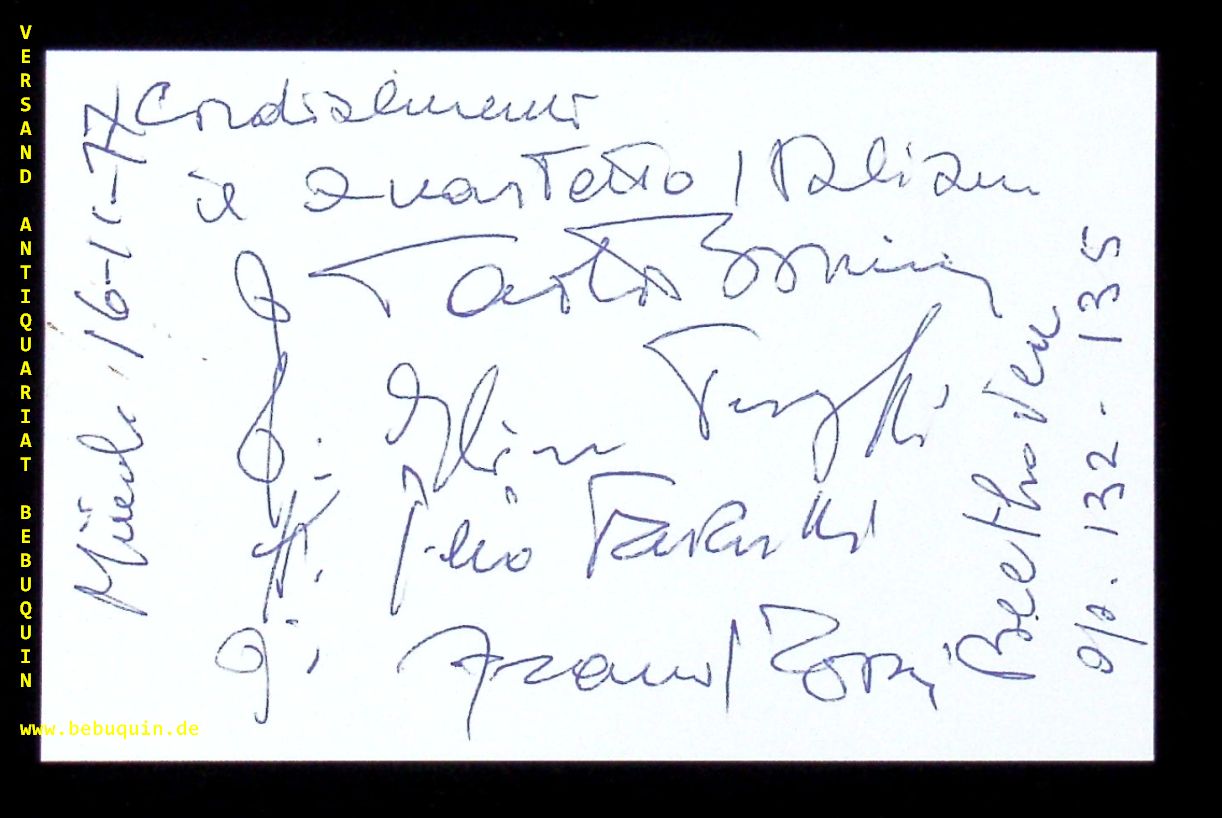 VERSAND ANTIQUARIAT BEBUQUIN
www.bebuquin.de
Cordialmente
il Quartetto Italiano
Paolo Borciani
Elisa Pegreffi
Piero Farulli
Franco Rossi
Beethoven
op. 132 - 135